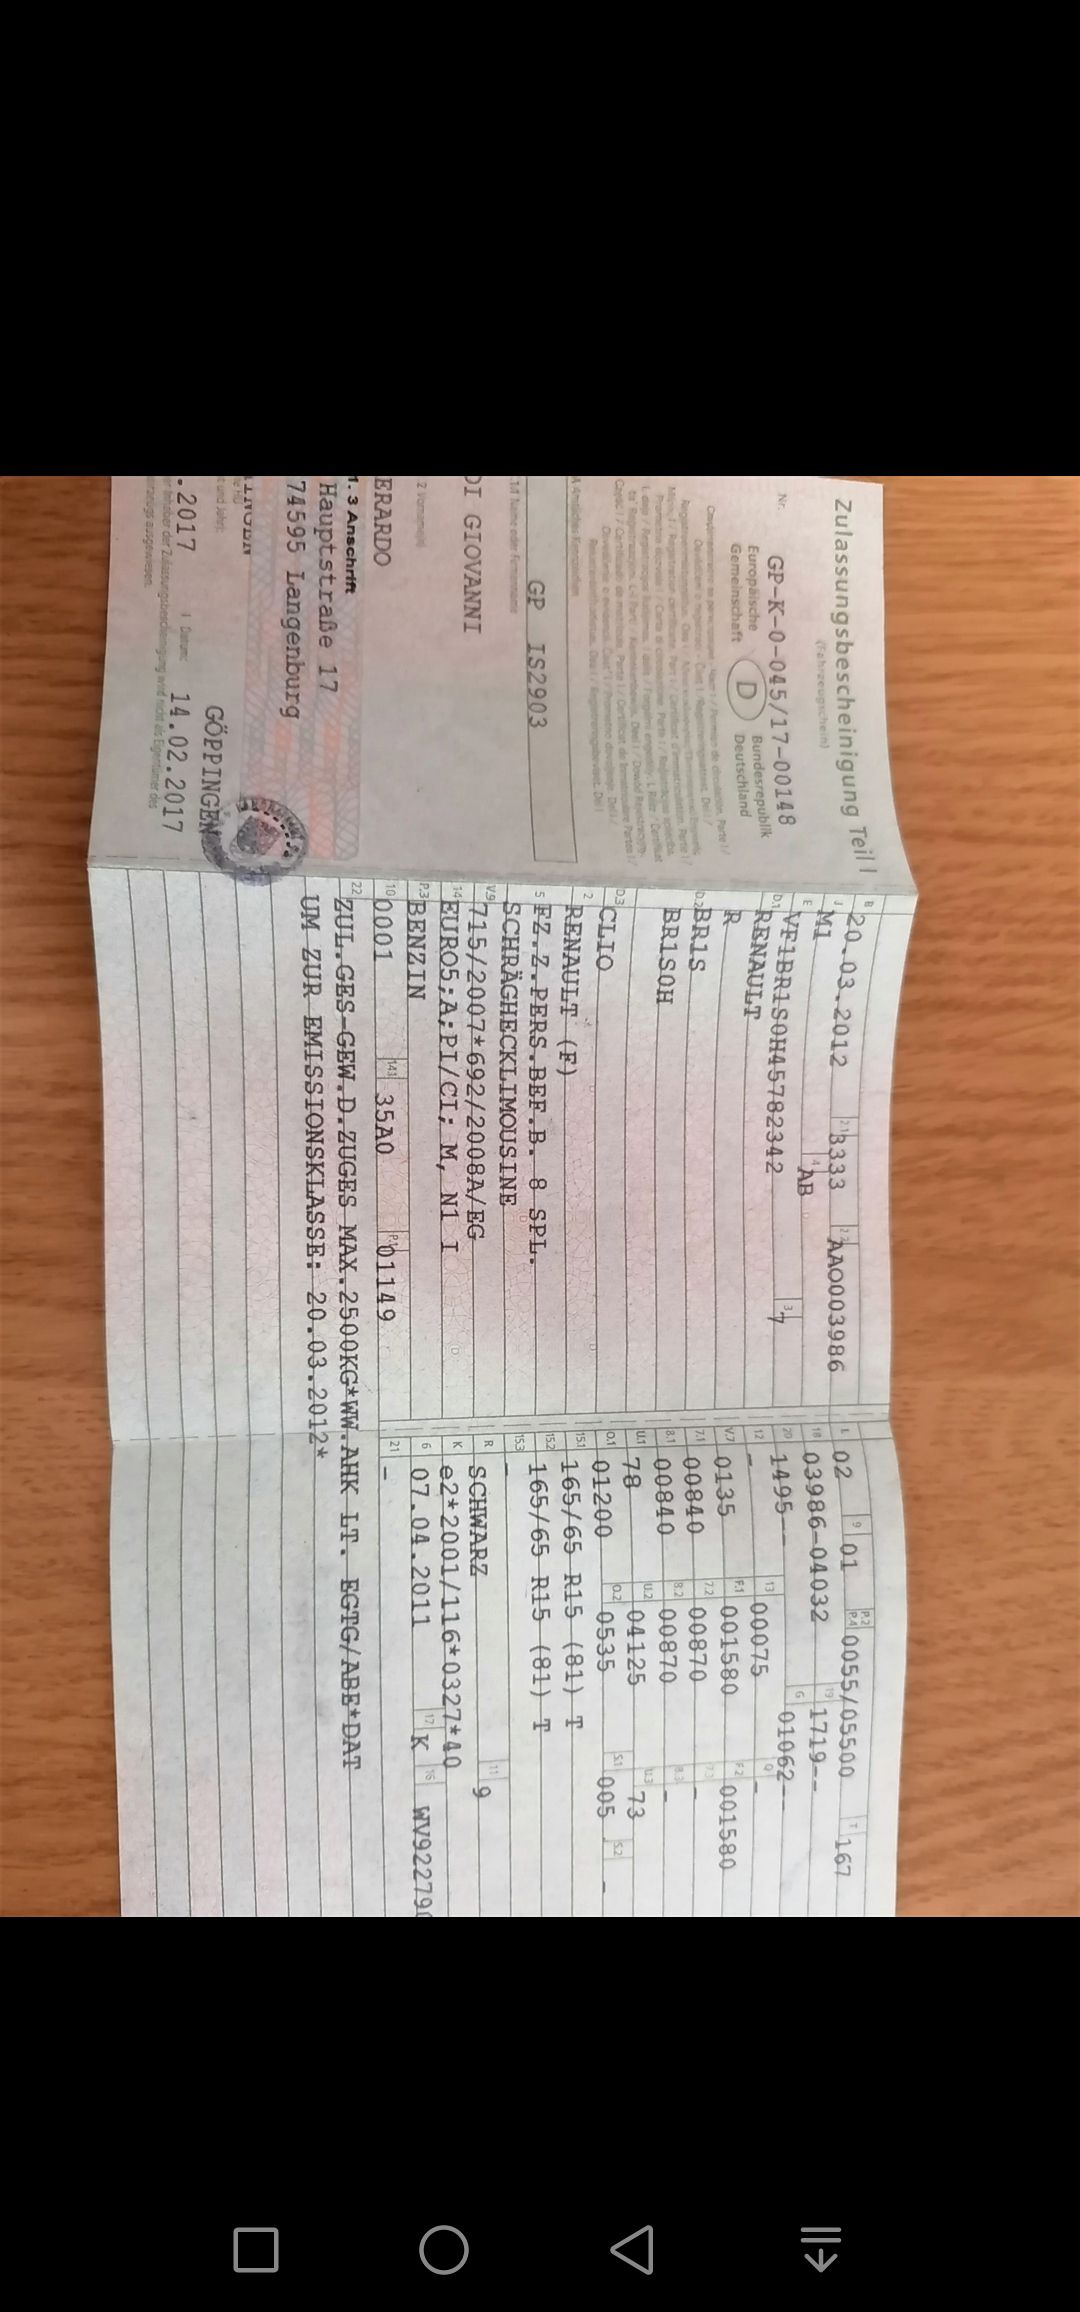 Zulassungsbescheinigung Teil I
(Fahrzeugschein)
Nr. GP-K-0-045/17-00148
Europäische Gemeinschaft
D
Bundesrepublik Deutschland
GP IS2903
DI GIOVANNI
2 Vorname(n)
ERARDO
1.3 Anschrift
Hauptstraße 17
74595 Langenburg
GÖPPINGEN
.2017
Datum: 14.02.2017
B 20.03.2012 2.1 3333 2.2 AAO003986
J M1 4 AB
E VF1BR1S0H45782342 3 7
D.1 RENAULT
R
D.2 BR1S
BR1SOH
D.3 CLIO
2 RENAULT (F)
5 FZ.Z.PERS.BEF.B. 8 SPL.
SCHRÄGHECKLIMOUSINE
V.9 715/2007*692/2008A/EG
14 EURO5;A;PI/CI; M, N1 I
P.3 BENZIN
10 0001 14.1 35A0 P.1 01149
22 ZUL.GES-GEW.D.ZUGES MAX.2500KG*WW.AHK LT. EGTG/ABE*DAT
UM ZUR EMISSIONSKLASSE: 20.03.2012*
L 02 9 01 P.2 P.4 0055/05500 T 167
18 03986-04032 19 1719--
20 1495-- G 01062--
12 - 13 00075 Q -
V.7 0135 F.1 001580 F.2 001580
7.1 00840 7.2 00870 7.3 -
8.1 00840 8.2 00870 8.3 -
U.1 78 U.2 04125 U.3 73
O.1 01200 O.2 0535 S.1 005 S.2 -
15.1 165/65 R15 (81) T
15.2 165/65 R15 (81) T
15.3 -
R SCHWARZ 11 9
K e2*2001/116*0327*40
6 07.04.2011 17 K 16 WV922790
21 -